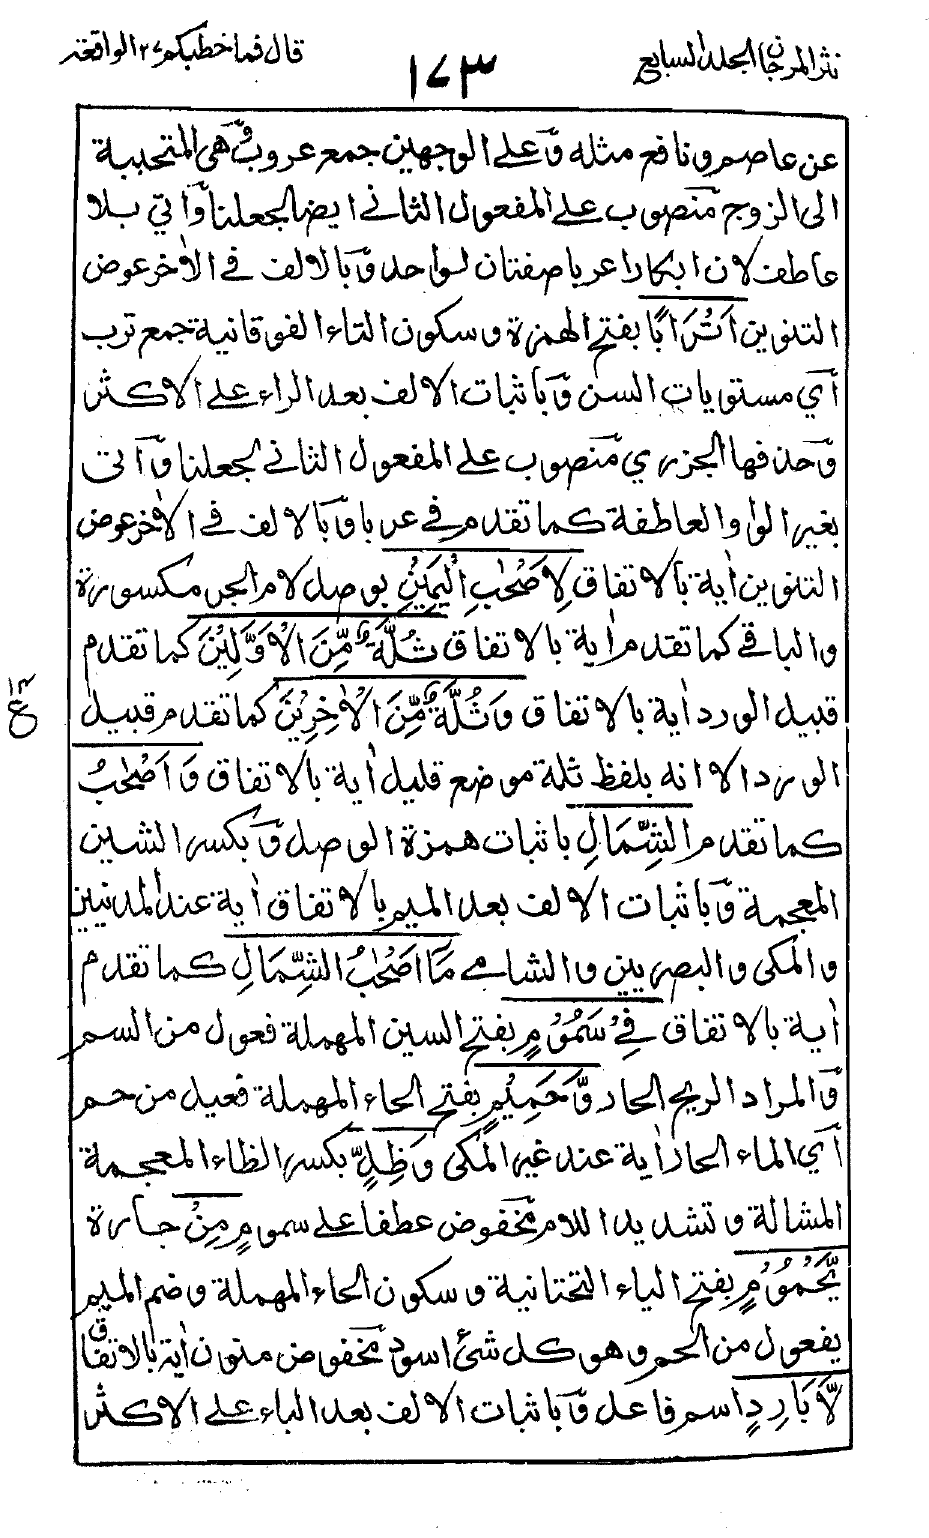 نثر المرجان المجلد السابع
١٧٣
قال فما خطبكم ٢٧ الواقعة
عن عاصم ونافع مثله وٓعلى الوجهين جمع عروب وٓهي المتحببة
الى الزوج منصوب على المفعول الثاني ايضا لجعلنا وٓاتي بلا
عاطف لان ابكارا عربا صفتان لواحد وٓبالالف في الاٰخر عوض
التنوين اَتْرَابًا بفتح الهمزة وسكون التاء الفوقانية جمع ترب
آي مستويات السن وٓباثبات الالف بعد الراء على الاكثر
وٓحذفها الجزري منصوب على المفعول الثاني لجعلنا وٓاتى
بغير الواو العاطفة كما تقدم في عربا وٓبالالف في الاٰخر عوض
التنوين اٰية بالاتفاق لِاَصْحٰبِ الْيَمِيْنِ بوصل لام الجر مكسورة
والباقي كما تقدم اٰية بالاتفاق ثُلَّةٌ مِّنَ الْاَوَّلِيْنَ كما تقدم
قبيل الورد اٰية بالاتفاق وَثُلَّةٌ مِّنَ الْاٰخِرِيْنَ كما تقدم قبيل
الورد الا انه بلفظ ثلة موضع قليل اٰية بالاتفاق وَاَصْحٰبُ
كما تقدم الشِّمَالِ باثبات همزة الوصل وٓبكسر الشين
المعجمة وٓباثبات الالف بعد الميم بالاتفاق اٰية عند المدنيين
والمكى والبصريين والشامي مَآ اَصْحٰبُ الشِّمَالِ كما تقدم
اٰية بالاتفاق فِيْ سَمُوْمٍ بفتح السين المهملة فعول من السم
وٓالمراد الريح الحار وَّحَمِيْمٍ بفتح الحاء المهملة فعيل من حم
آي الماء الحار اٰية عند غير المكى وَظِلٍّ بكسر الظاء المعجمة
المشالة وتشديد اللام مخفوض عطفا على سموم مِنْ جارة
يَّحْمُوْمٍ بفتح الياء التحتانية وسكون الحاء المهملة وضم الميم
يفعول من الحم وهو كل شئ اسود مخفوض منون اٰية بالاتفاق
لَّا بَارِدٍ اسم فاعل وٓباثبات الالف بعد الباء على الاكثر
١٤
ع